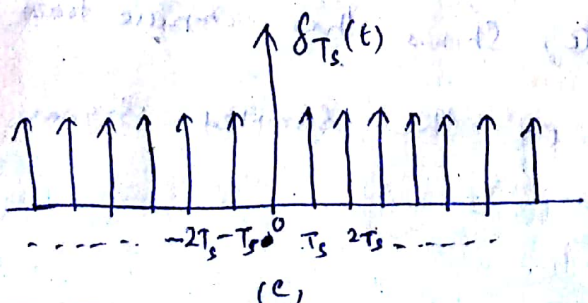 δTs(t)
------ -2Ts -Ts 0 Ts 2Ts ------
(c)